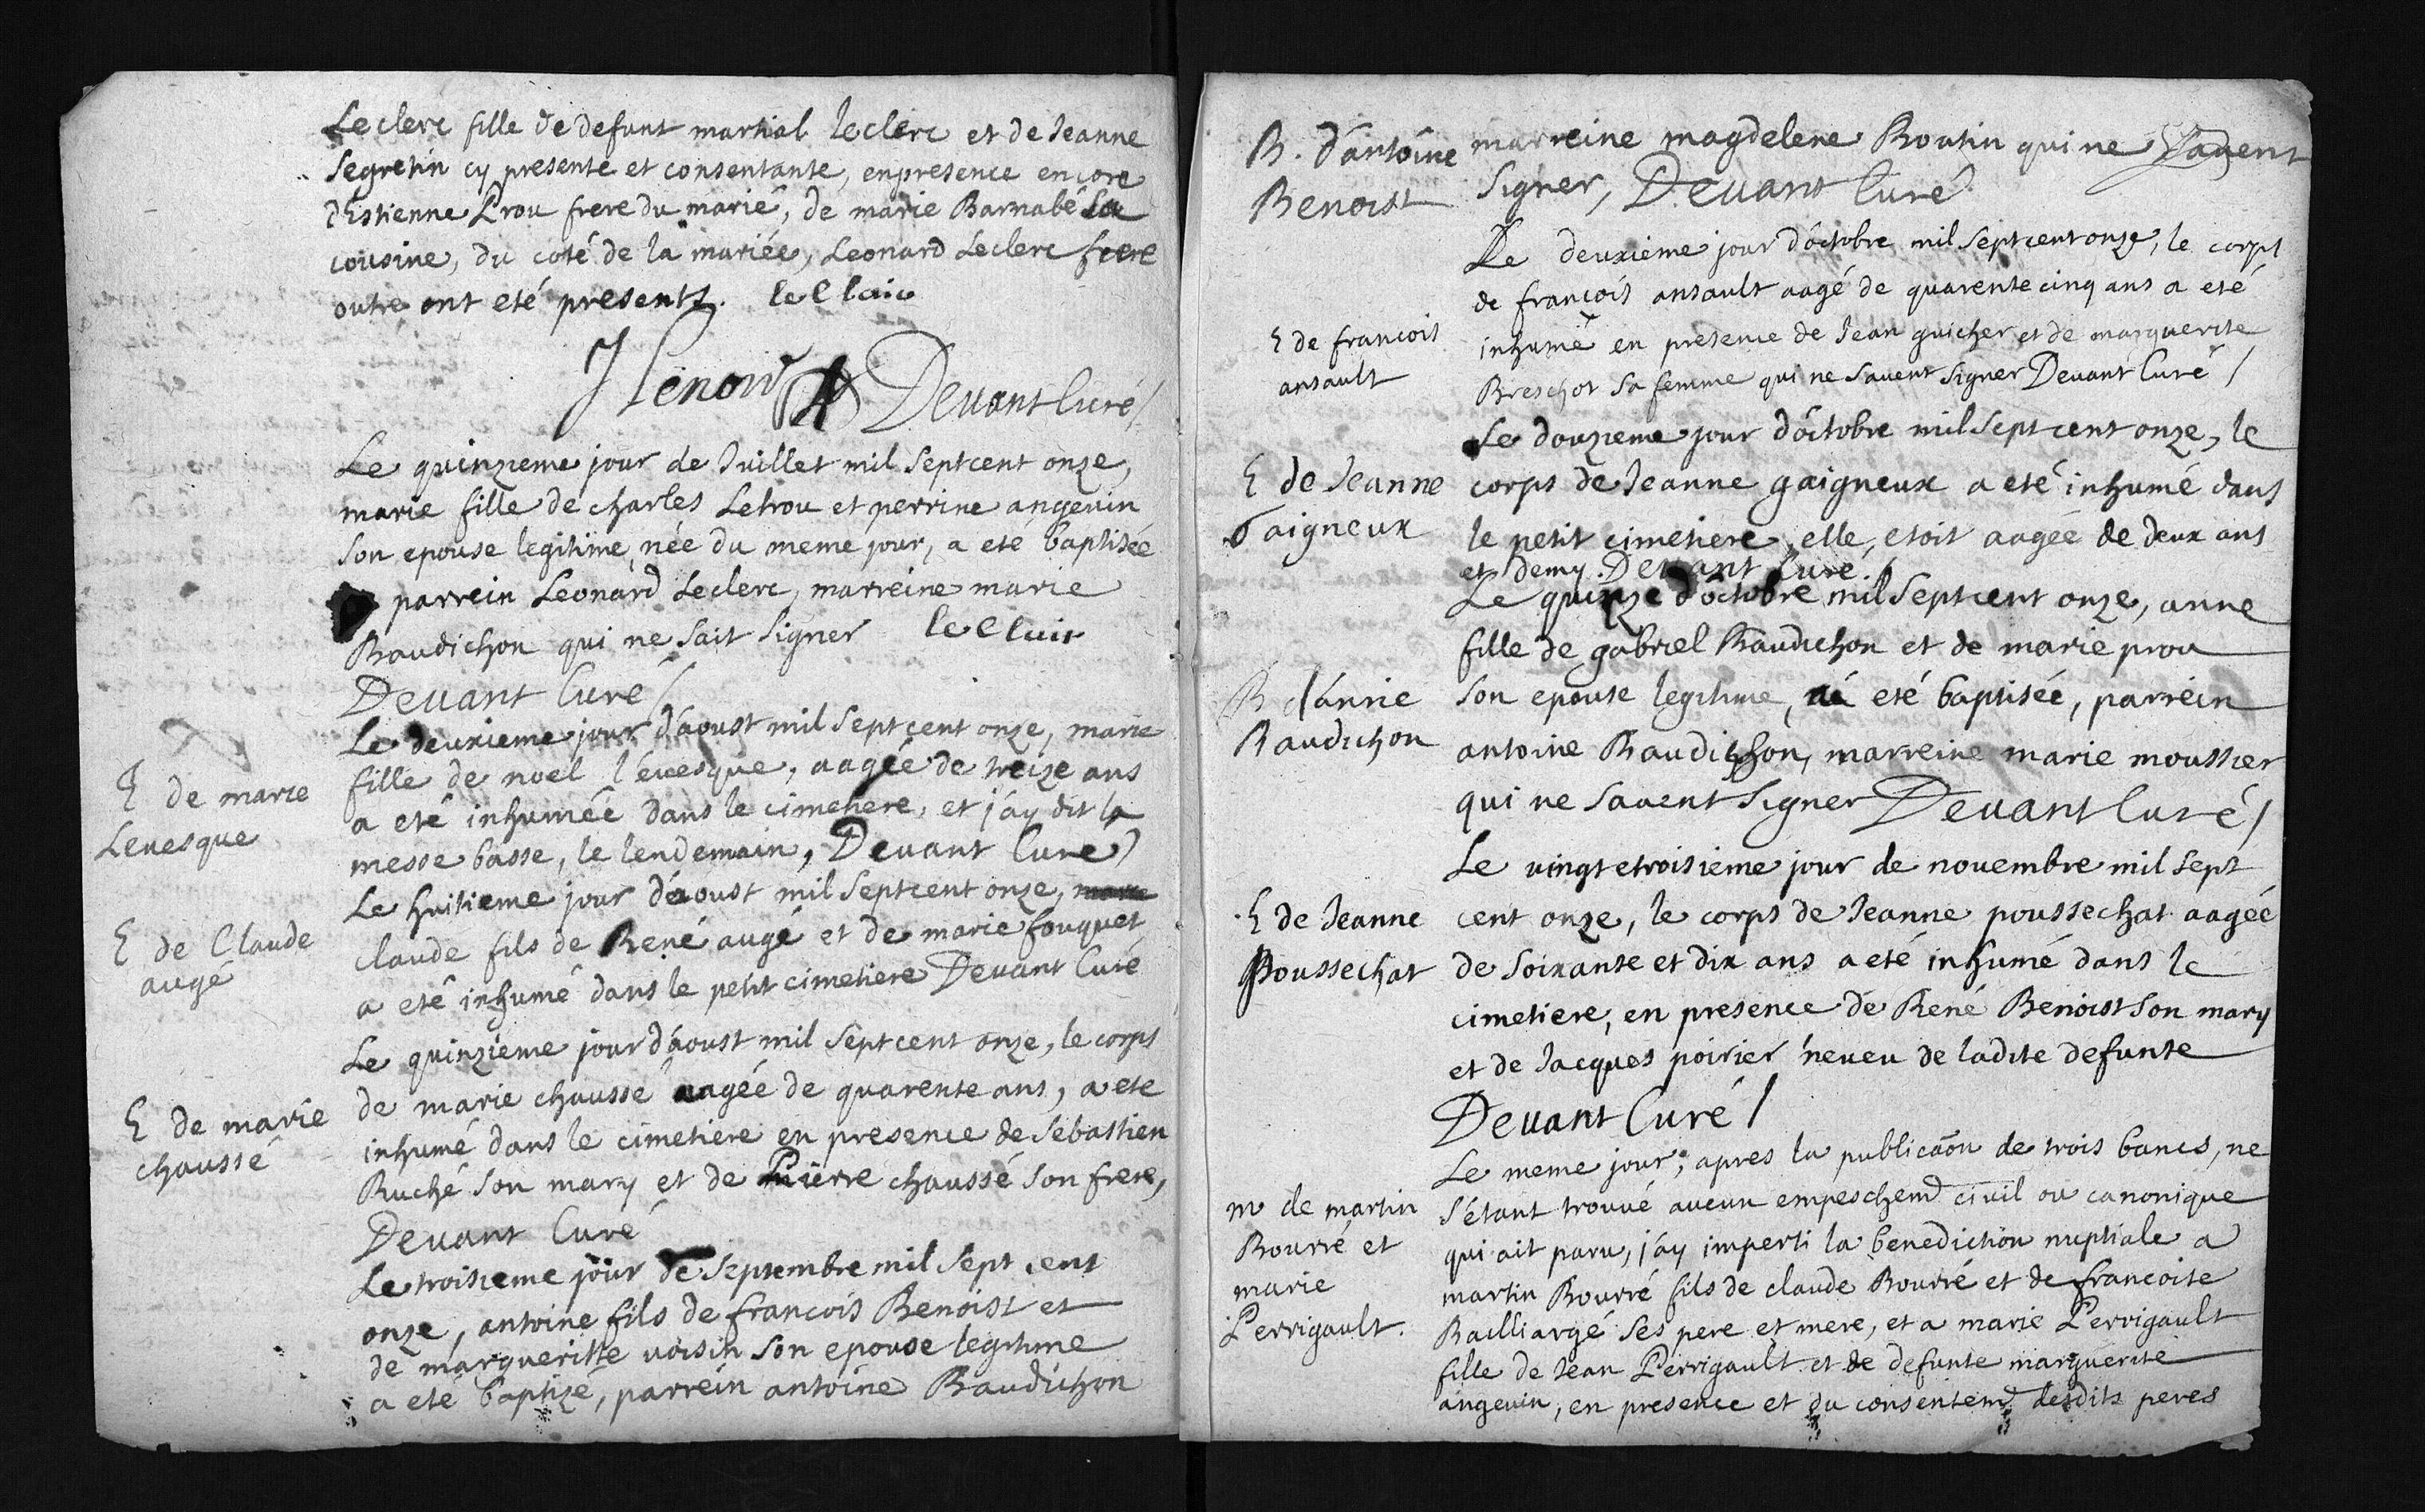 Leclerc fille de defunt martial leclerc et de Jeanne
Segretin cy presente et consentante, enpresence encore
d'Estienne Prou frere du marié, de marie Barnabé sa
cousine, du coté de la mariée, Leonard Leclerc frere
outre ont eté presents. le Clair
Devant Curé /
Le quinzieme jour de Juillet mil Sept cent onze,
marie fille de charles Letrou et perrine angevin
Son epouse legitime née du meme jour, a eté baptisée
parrein Leonard Leclerc, marreine marie
Baudichon qui ne sait signer le Clair
Devant Curé /
Le deuxieme jour d'aoust mil sept cent onze, marie
E de marie
Levesque
fille de noel l'évesque, aagée de treize ans
a eté inhumée dans le cimetiere, et j'ay dit la
messe basse, le lendemain, Devant Curé /
Le huitieme jour d'aoust mil Sept cent onze,
E de Claude
augé
claude fils de René augé et de marie fouquet
a eté inhumé dans le petit cimetiere Devant Curé
Le quinzieme jour d'aoust mil Sept cent onze, le corps
E de marie
chaussé
de marie chaussé aagée de quarente ans, a ete
inhumé dans le cimetiere en presence de Sebastien
Ruché Son mary et de Pierre chaussé Son frere,
Devant Curé
Le troisieme jour de Septembre mil Sept cent
onze, antoine fils de francois Benoist et
de margueritte voisin Son epouse legitime
a eté baptizé, parrein antoine Baudichon
B. d'antoine
Benoist
marreine magdelene Boutin qui ne savent
signer, Devant Curé
Le deuxieme jour d'octobre mil Sept cent onze, le corps
E de francois
ansault
de francois ansault aagé de quarente cinq ans a eté
inhumé en presence de Jean guicher et de marguerite
Breschot sa femme qui ne savent signer Devant Curé /
Le douzieme jour d'octobre mil Sept cent onze, le
E de Jeanne
Gaigneux
corps de Jeanne gaigneux a eté inhumé dans
le petit cimetiere, elle, etoit aagée de deux ans
et demy. Devant Curé. /
Le quinze d'octobre mil Sept cent onze, anne
fille de gabriel Baudichon et de marie prou
B d'anne
Baudichon
son epouse legitime, a eté baptisée, parrein
antoine Baudichon, marreine marie moussier
qui ne savent signer Devant Curé /
Le vingt etroisieme jour de novembre mil Sept
E de Jeanne
Poussechat
cent onze, le corps de Jeanne poussechat aagée
de soixante et dix ans a eté inhumé dans le
cimetiere, en presence de René Benoist son mary
et de Jacques poirier neveu de ladite defunte
Devant Curé /
Le meme jour, apres la publicaõn de trois bancs, ne
m de martin
Bourré et
marie
Perrigault.
s'étant trouvé aucun empeschemt civil ou canonique
qui ait paru, j'ay imperti la benediction nuptiale a
martin Bourré fils de claude Bourré et de francoise
Bailliargé ses pere et mere, et a marie Perrigault
fille de Jean Perrigault et de defunte marguerite
angevin, en presence et du consentemt desdits peres